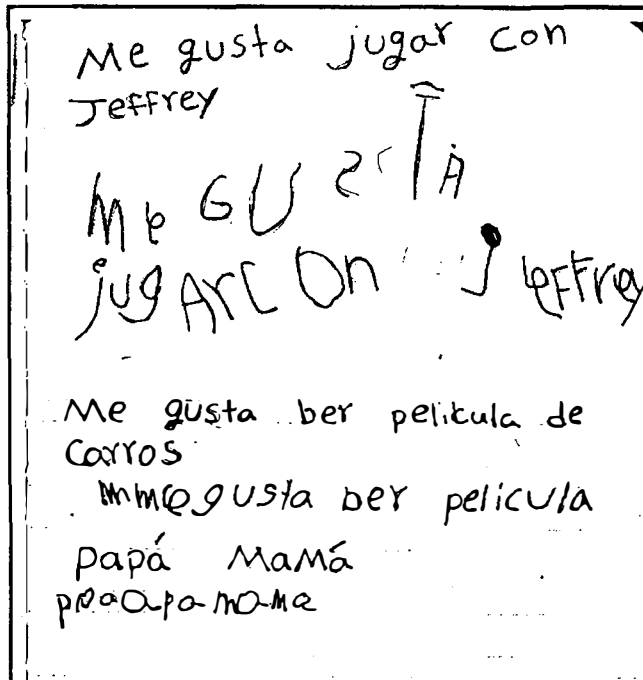 Me gusta jugar con
Jeffrey
Me GUstA
jugArcOn Jeffrey
Me gusta ber pelicula de
carros
mmegusta ber pelicula
papá MaMá